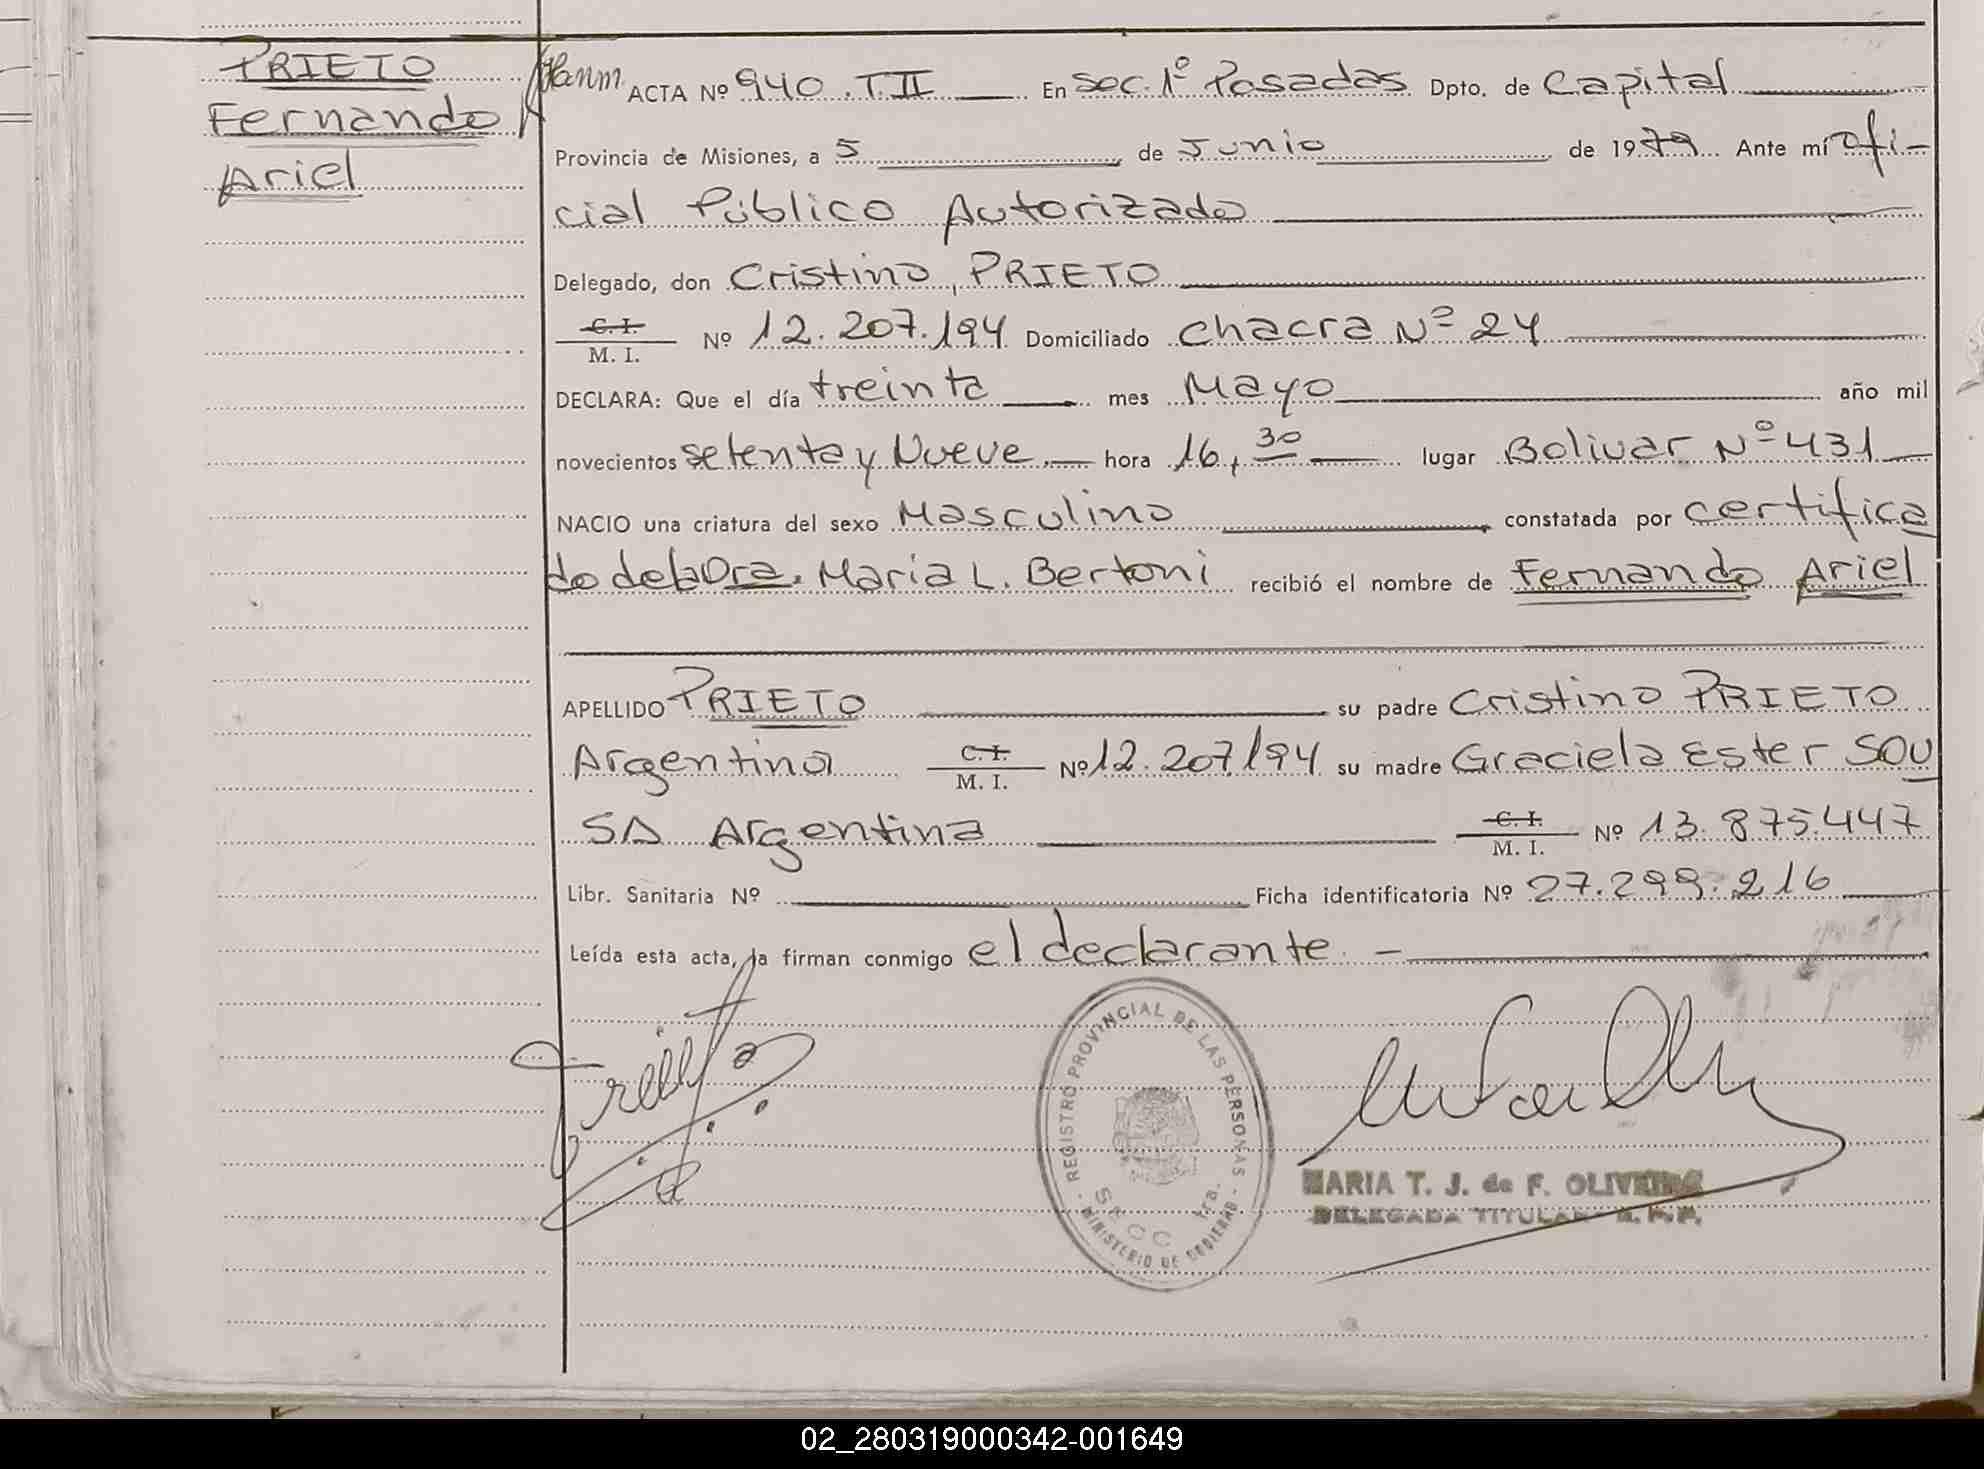 PRIETO
Fernando
Ariel
ACTA Nº 940. T II En Sec. 1º Posadas Dpto. de Capital
Provincia de Misiones, a 5 de Junio de 1979 Ante mí Ofi-
cial Público Autorizado
Delegado, don Cristino, PRIETO
C. I.
M. I. Nº 12.207.194 Domiciliado Chacra Nº 24
DECLARA: Que el día treinta mes Mayo año mil
novecientos setenta y Nueve hora 16,30 lugar Bolivar Nº 431
NACIO una criatura del sexo Masculino constatada por certifica
do de la Dra. Maria L. Bertoni recibió el nombre de Fernando Ariel
APELLIDO PRIETO su padre Cristino PRIETO
Argentino C. I.
M. I. Nº 12.207.194 su madre Graciela Ester SOU
SA Argentina C. I.
M. I. Nº 13.875.447
Libr. Sanitaria Nº Ficha identificatoria Nº 27.299.216
Leída esta acta, la firman conmigo el declarante. -
REGISTRO PROVINCIAL DE LAS PERSONAS
SECC. 1ra.
MINISTERIO DE GOBIERNO
MARIA T. J. de F. OLIVEIRA
DELEGADA TITULAR R. P. P.
02_280319000342-001649